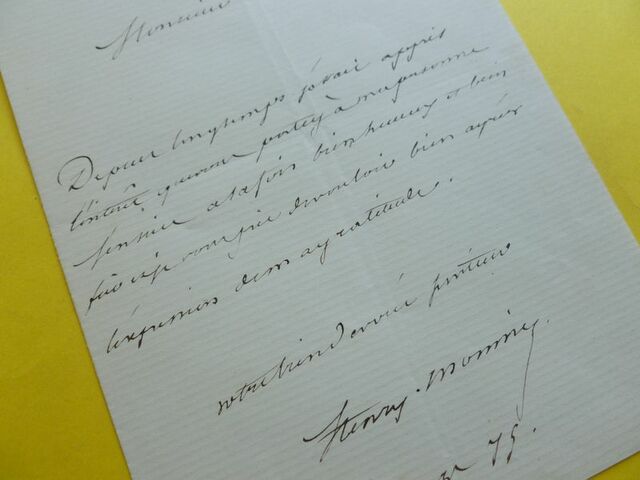 Monsieur
Depuis longtemps j'avais appris
l'intérêt que vous portez à ma personne
bien heureux et bien
vous prie de vouloir bien agréer
l'expression de ma gratitude.
votre bien dévoué
Henry Monnier.
75.